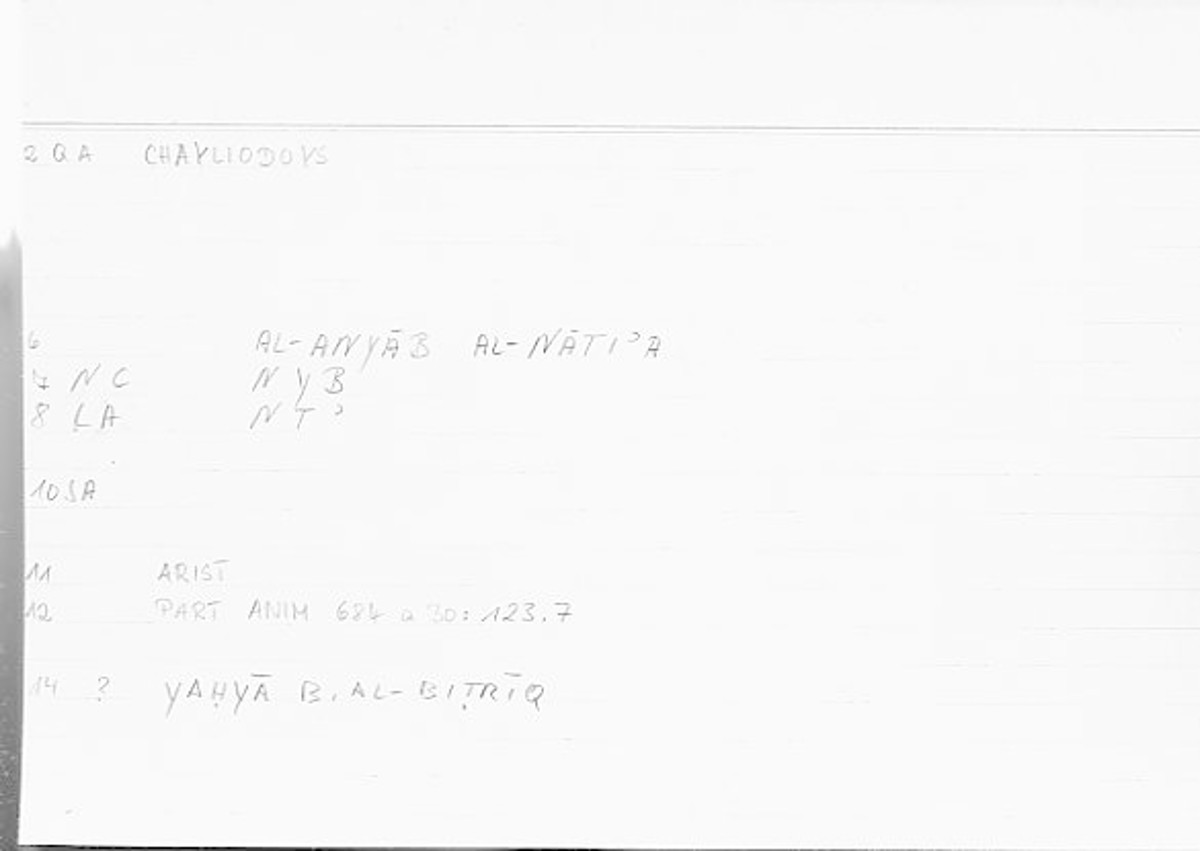 2 QA CHAYLIODOYS
6 AL-ANYĀB AL-NĀTIʾA
7 NC NYB
8 LA NTʾ
10 SA
11 ARIST
12 PART ANIM 684 a 30: 123.7
14 ? YAḤYĀ B. AL-BIṬRĪQ